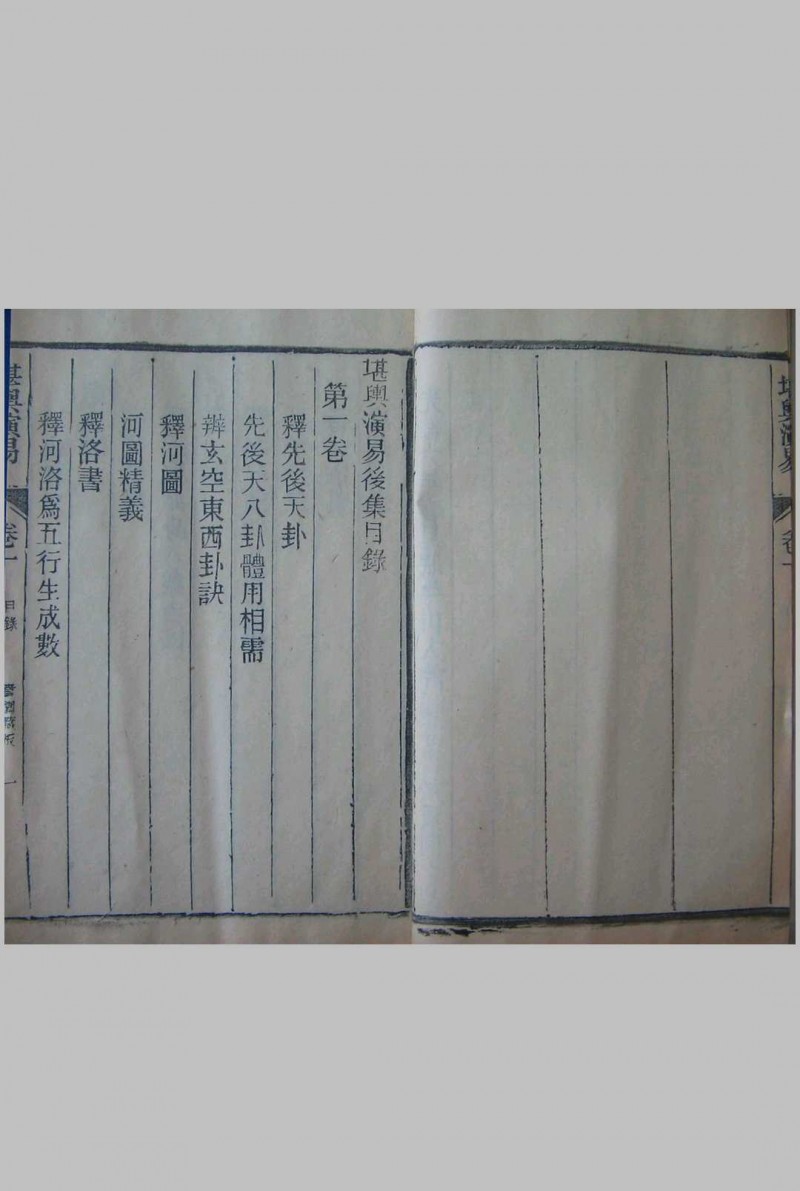 堪輿演易
卷一
堪輿演易後集目錄
第一卷
釋先後天卦
先後天八卦體用相需
辨玄空東西卦訣
釋河圖
河圖精義
釋洛書
釋河洛為五行生成數
堪輿演易
卷一
目錄
一